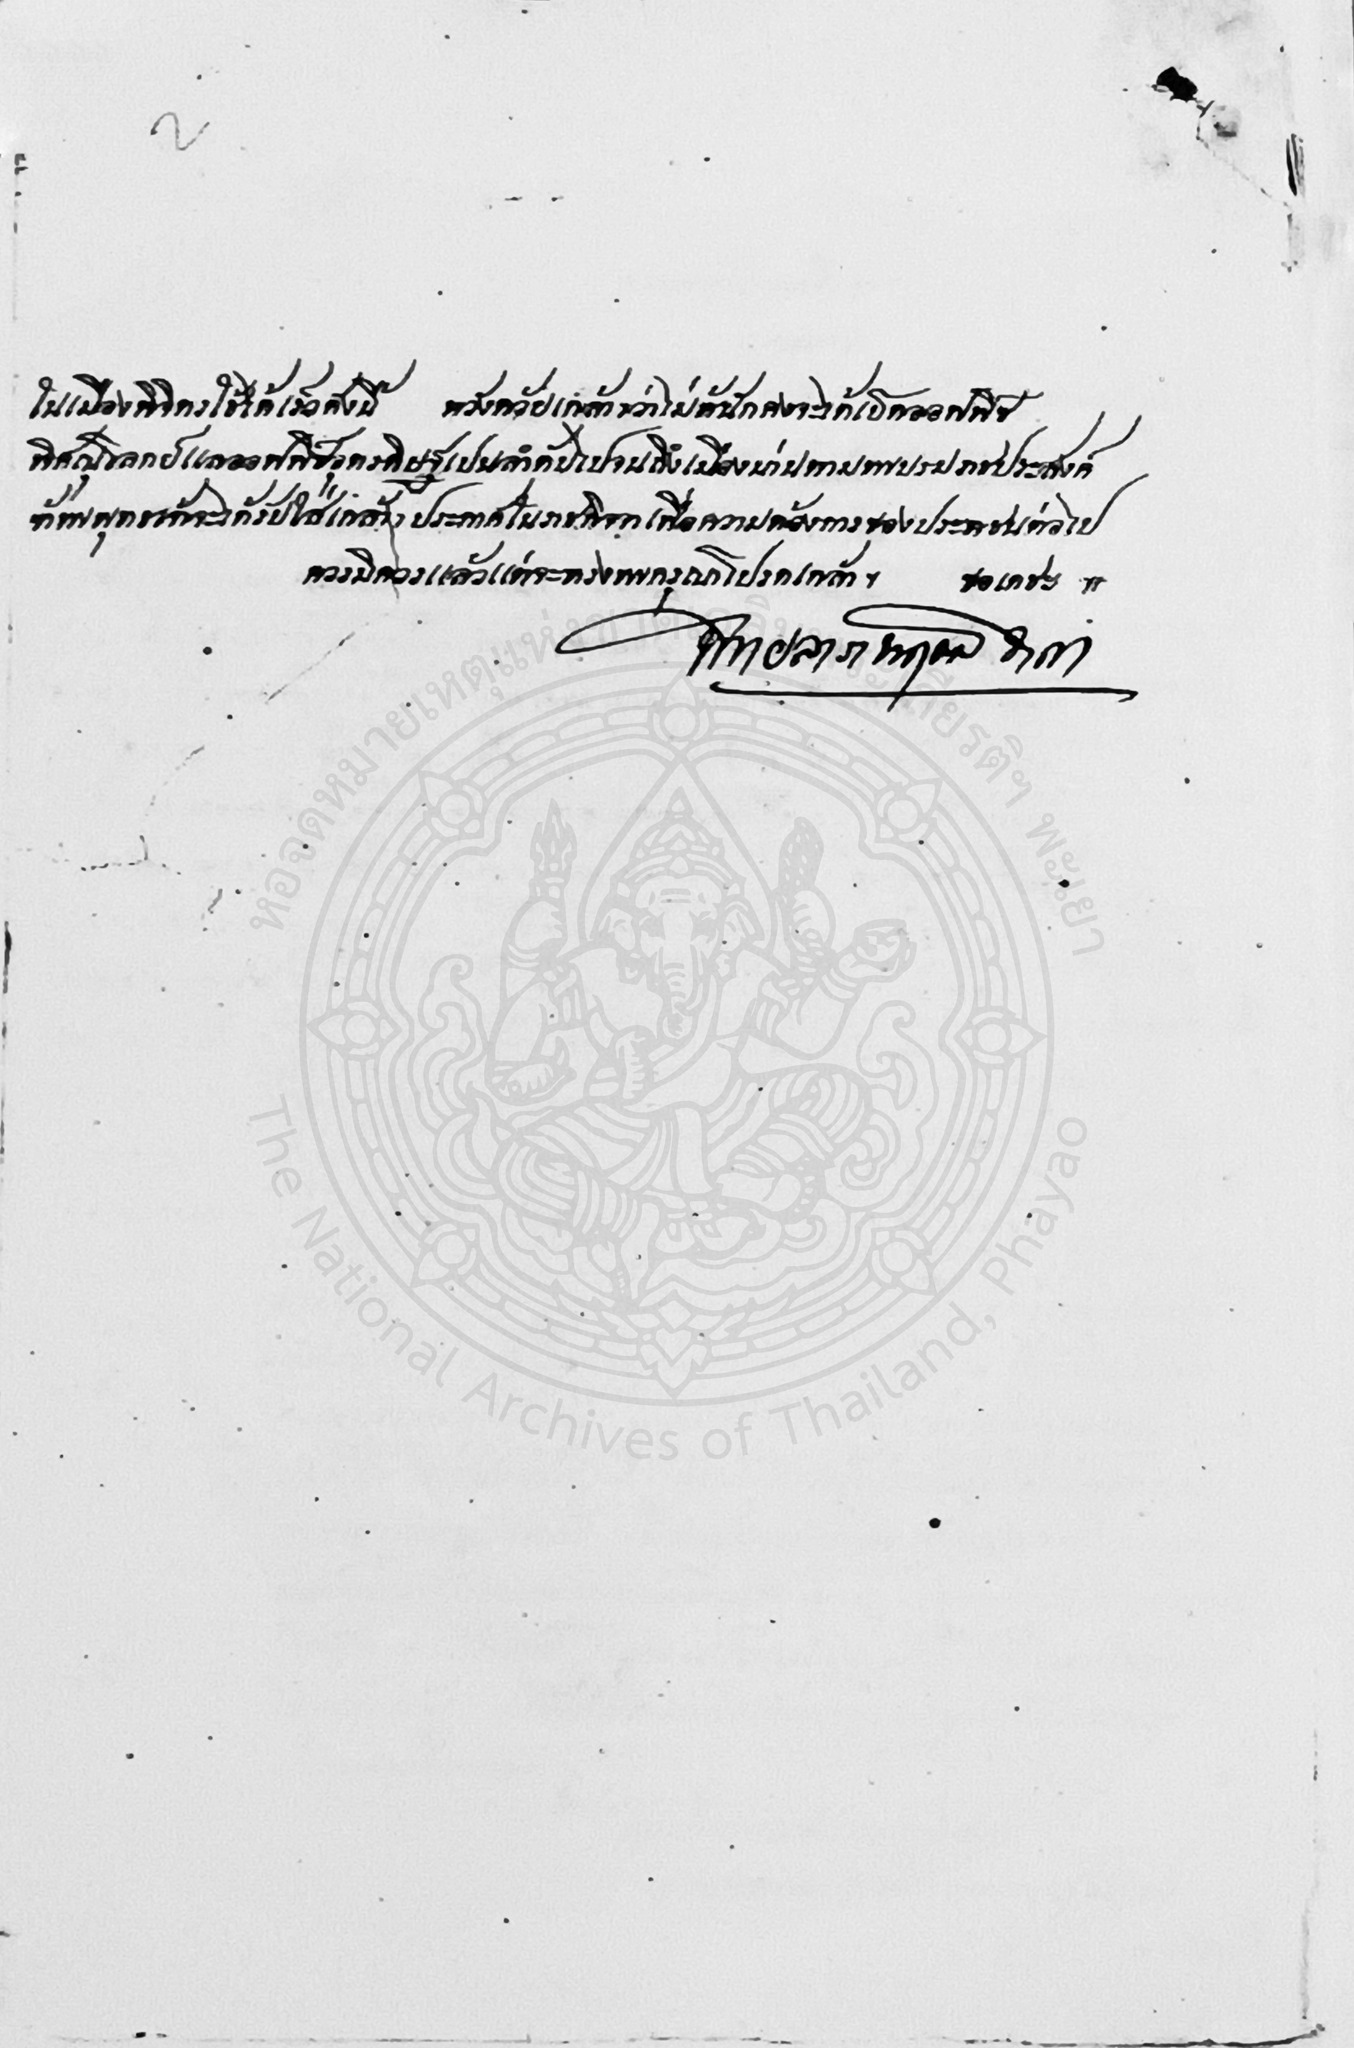 ในเมืองพิจิตรใช้ได้เร็วดังนี้ หวังด้วยเกล้าฯว่าไม่ช้านักคงจะได้เปิดออฟฟิซ
พิศณุโลกย์แลออฟฟิซอุตรดิษฐเปนลำดับไปจนถึงเมืองน่านตามพระบรมราชประสงค์
ข้าพระพุทธเจ้าจะได้รับใส่เกล้าฯ ประกาศในราชกิจจาเพื่อความต้องการของประชาชนต่อไป
ควรมิควรแล้วแต่จะทรงพระกรุณาโปรดเกล้าฯ ขอเดชะ
พิทยลาภพฤฒิธาดา
หอจดหมายเหตุแห่งชาติเฉลิมพระเกียรติฯ พะเยา
The National Archives of Thailand, Phayao